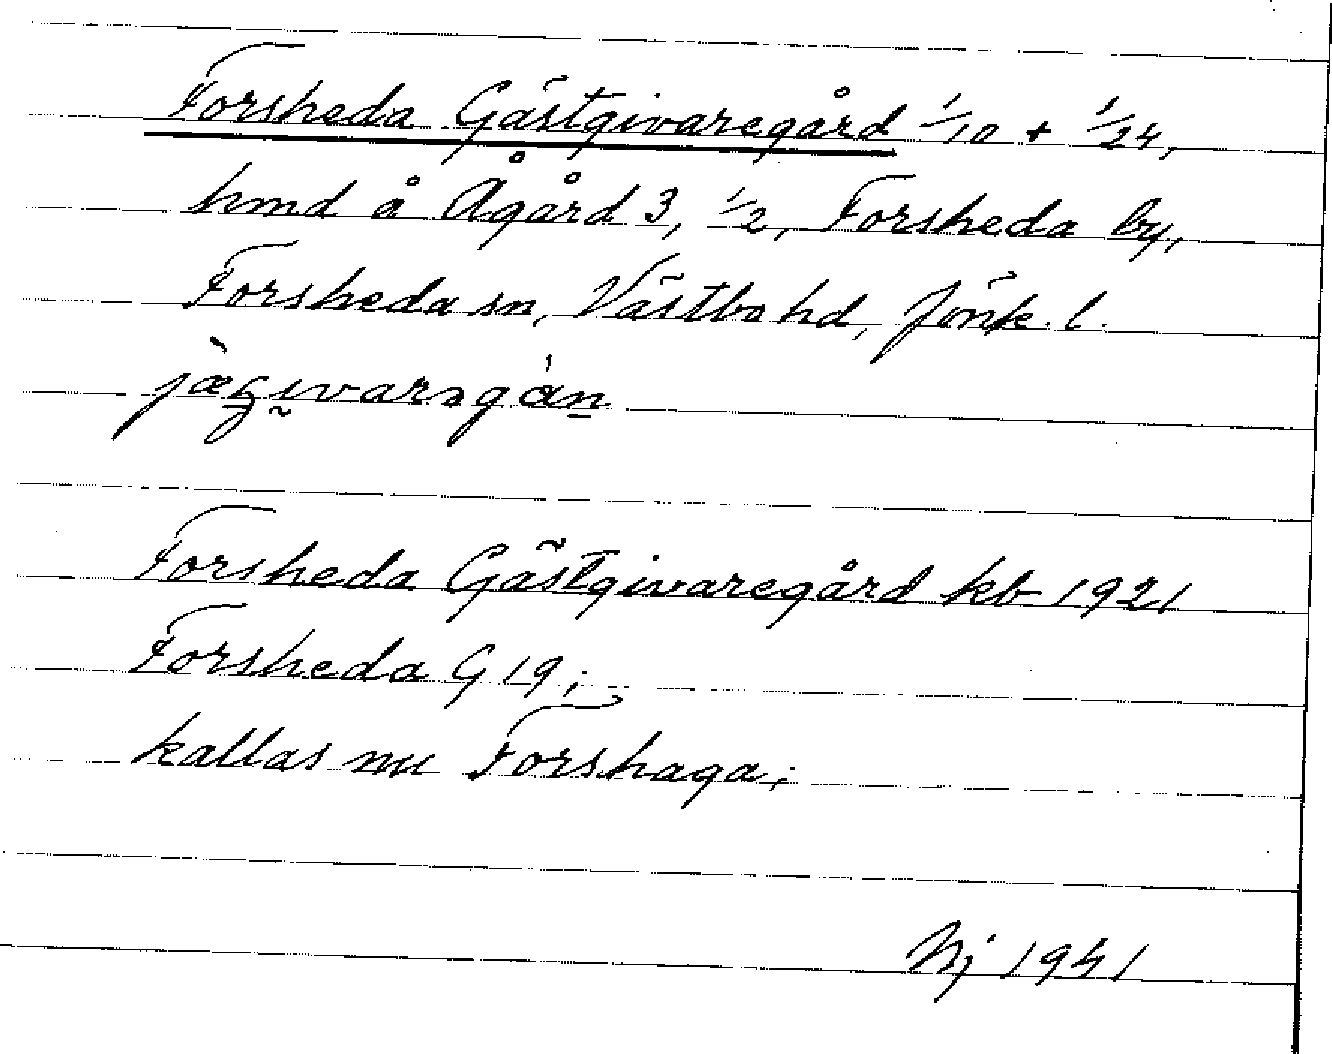 Forsheda Gästgivaregård 1/10 + 1/24,
hmd å Ågård 3, 1/2, Forsheda by,
Forsheda sn, Västbo hd, Jönk. l.
Forsheda Gästgivaregård kb 1921
Forsheda G 19;
kallas nu Forshaga;
1941